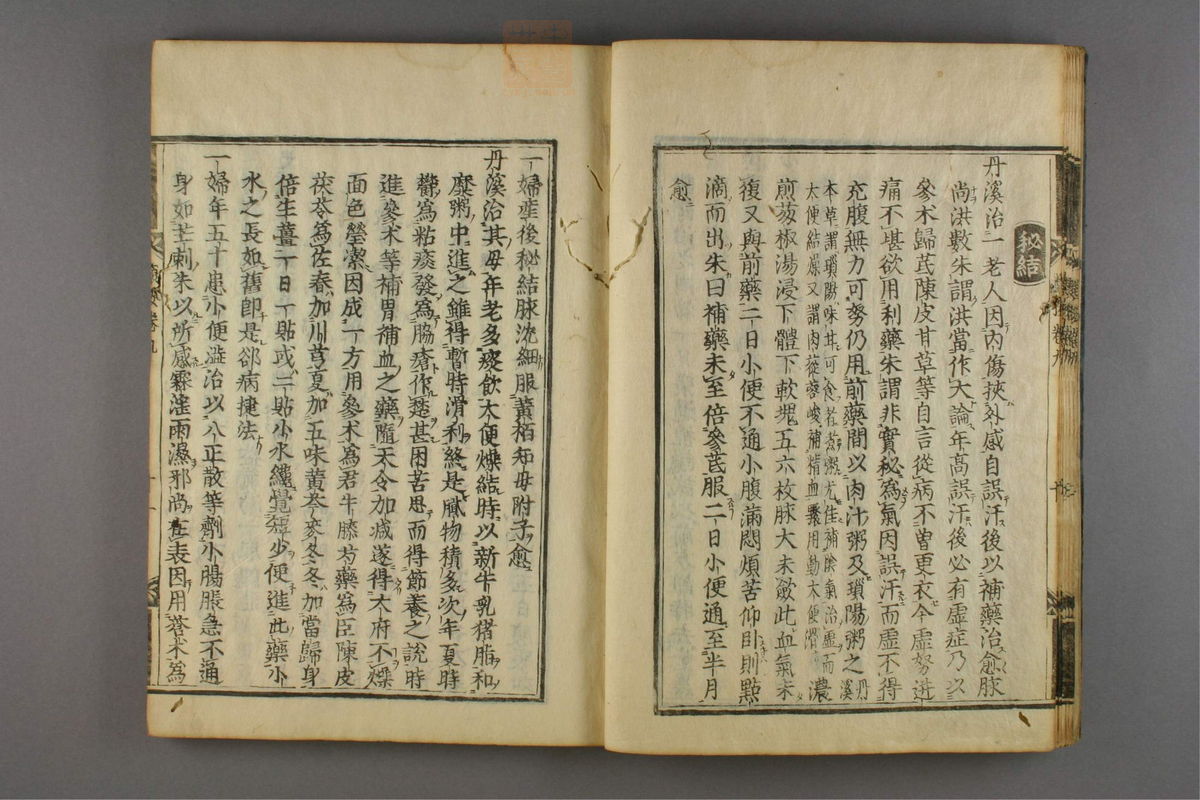 秘結
丹溪治一老人因內傷挾外感自誤汗後以補藥治愈脉
尚洪數朱謂洪當作大論年高誤汗後必有虛症乃以
參朮歸芪陳皮甘草等自言從病不曾更衣今虛努迸
痛不堪欲用利藥朱謂非實秘為氣因誤汗而虛不得
充腹無力可努仍用前藥間以肉汁粥及瑣陽粥之丹溪
本草謂瑣陽味甘可食者煮粥尤佳補陰氣治虛而
大便結燥又謂肉蓯蓉峻補精血驟用動大便滑濃
煎葱椒湯浸下體下軟塊五六枚脉大未斂此血氣未
復又與前藥二日小便不通小腹滿悶煩苦仰臥則點
滴而出朱曰補藥未至倍參芪服二日小便通至半月
愈
一婦產後秘結脉沈細服黃栢知母附子愈
丹溪治其母年老多痰飲大便燥結時以新牛乳猪脂和
糜粥中進之雖得暫時滑利終是膩物積多次年夏時
鬱為粘痰發為脇瘡作楚甚困苦思而得節養之說時
進參朮等補胃補血之藥隨天令加減遂得大府不燥
面色瑩潔因成一方用參朮為君牛膝芍藥為臣陳皮
茯苓為佐春加川芎夏加五味黃芩麥冬冬加當歸身
倍生薑一日一貼或二貼小水纔覺短少便進此藥小
水之長如舊卽是却病捷法
一婦年五十患小便澁治以八正散等劑小腸脹急不通
身如芒刺朱以所感霖淫雨濕邪尚在表因用蒼朮為